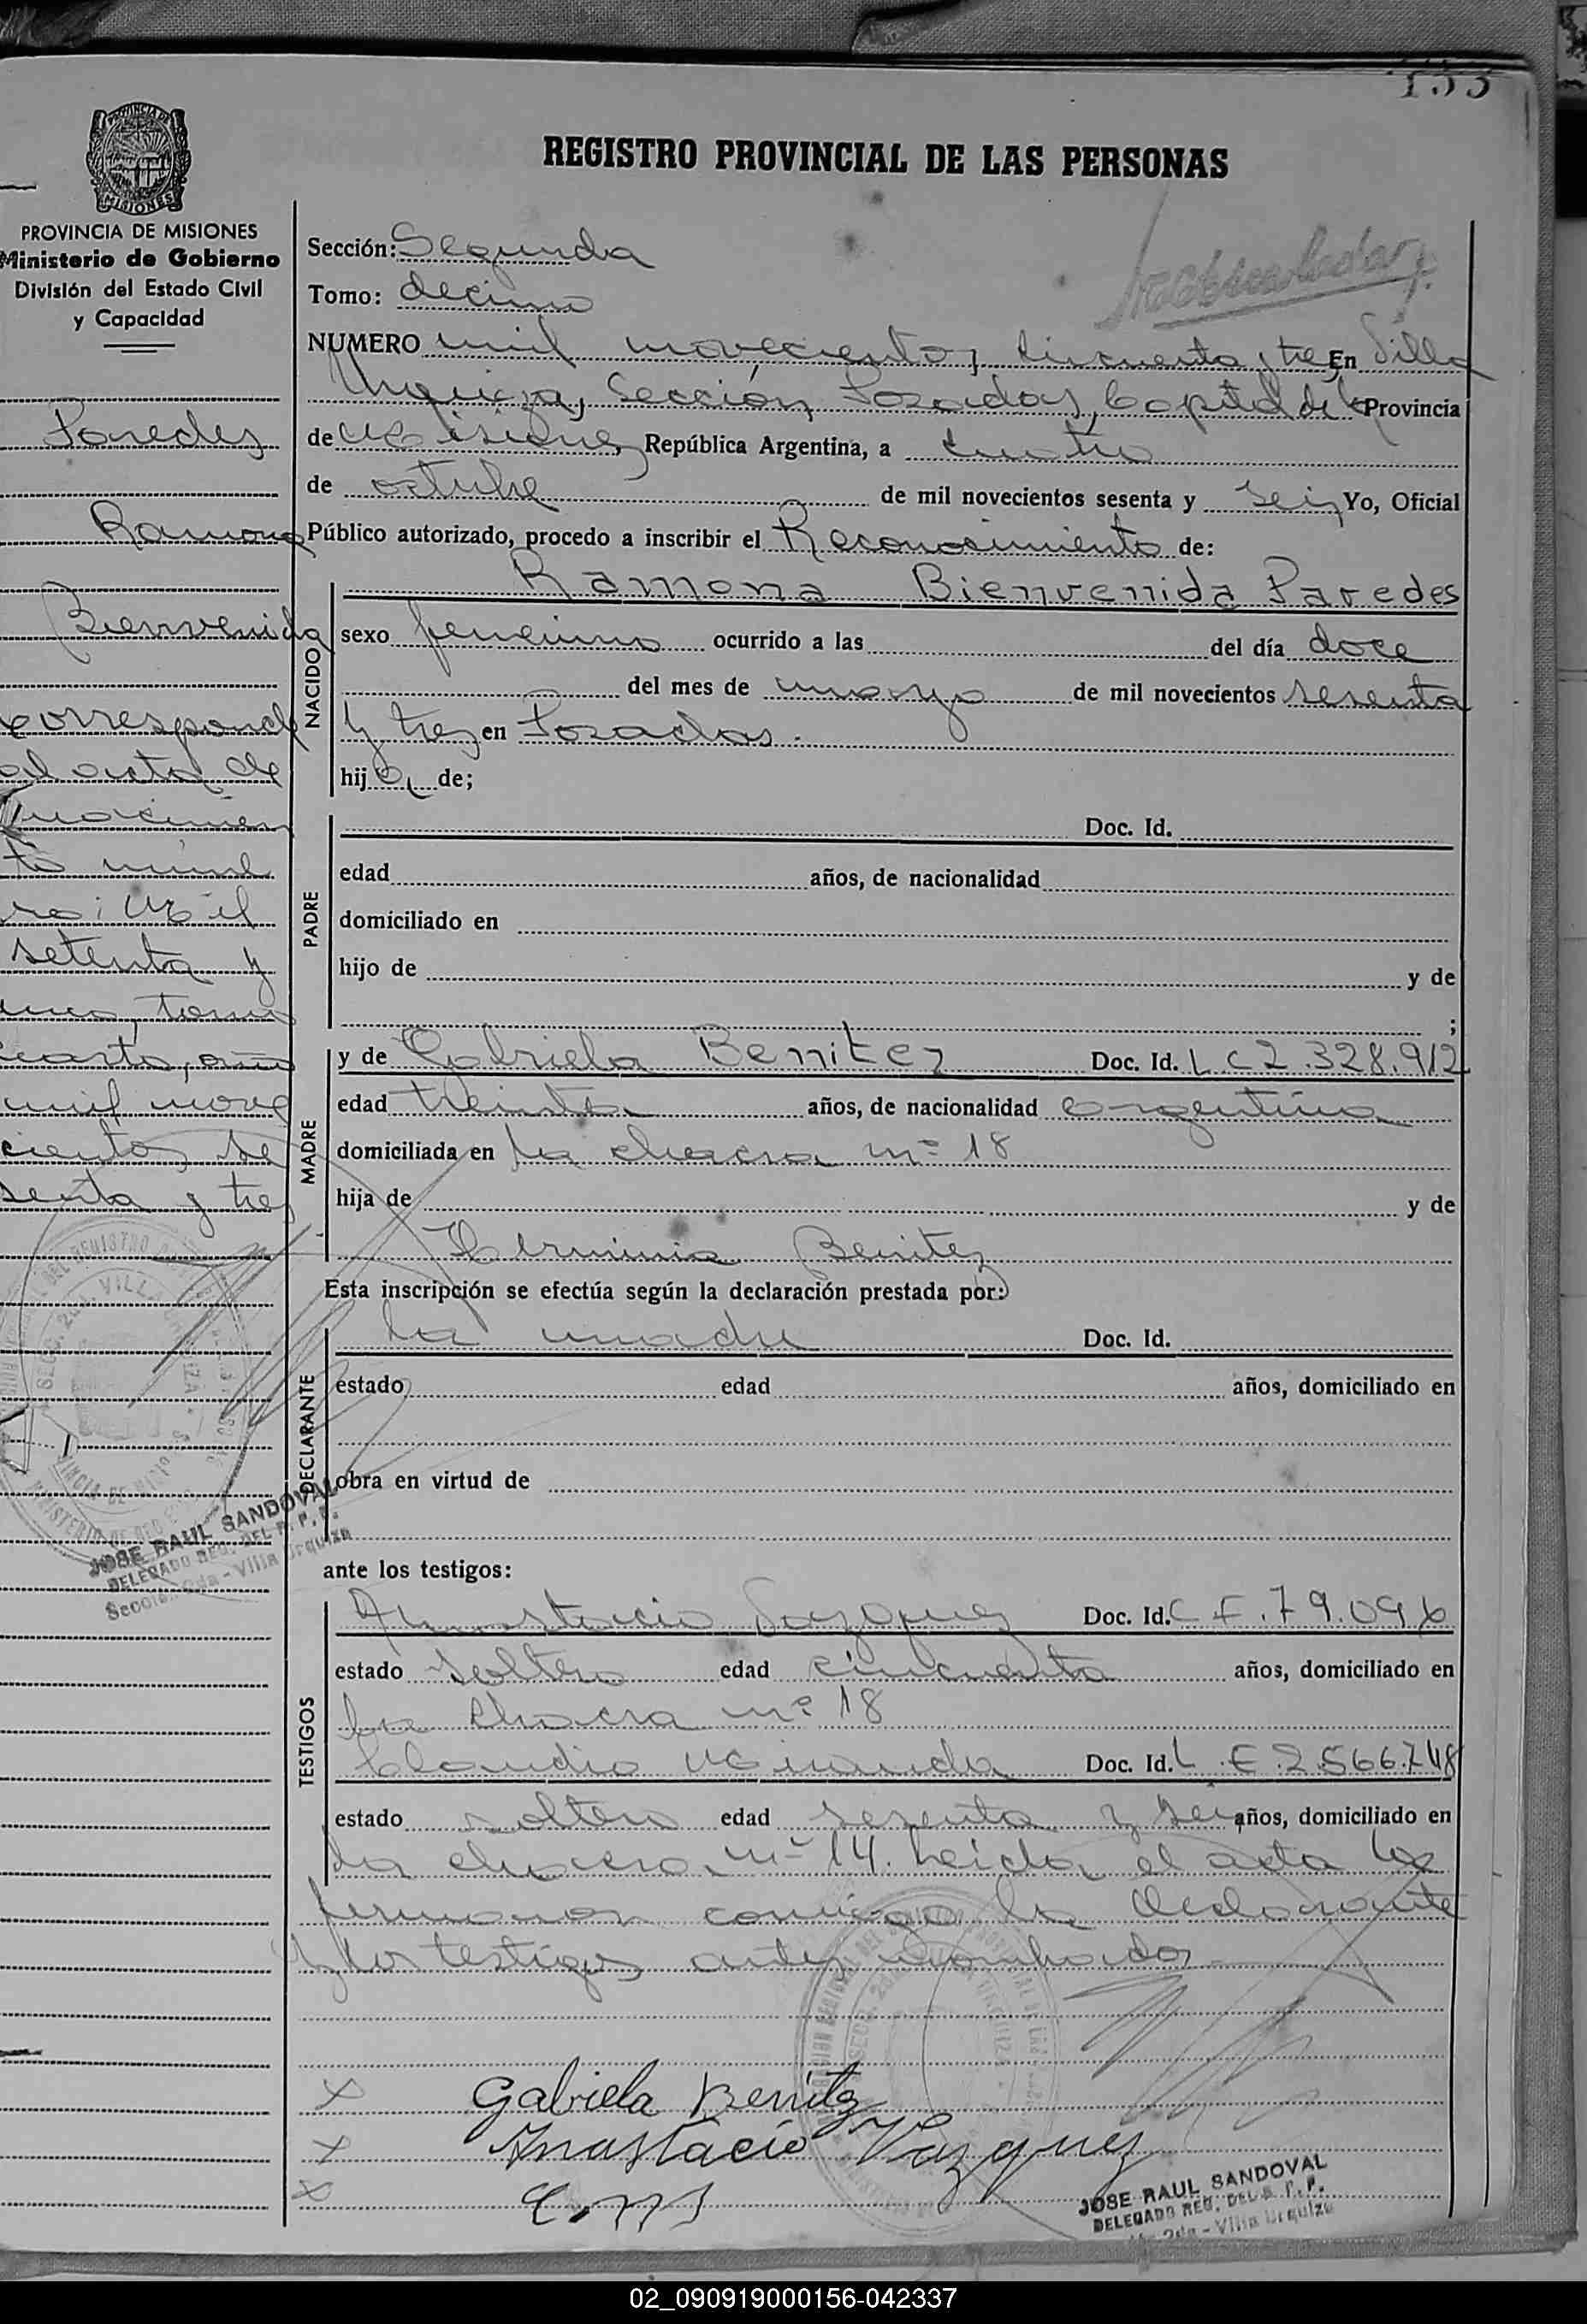 133
REGISTRO PROVINCIAL DE LAS PERSONAS
PROVINCIA DE MISIONES
Ministerio de Gobierno
División del Estado Civil
y Capacidad
Paredes
Ramona
Bienvenida
corresponde
al acta de
nacimien
to núme
ro: Mil
setenta y
uno, tomo
cuarto, año
mil nove
cientos se
senta y tres
JOSE RAUL SANDOVAL
DELEGADO REG. DEL R. P. P.
Sección 2da - Villa Urquiza
Sección: Segunda
Tomo: decimo
NUMERO mil novecientos cincuenta y tres En Villa
Urquiza, Sección Posadas, Capital de la Provincia
de Misiones República Argentina, a cuatro
de octubre de mil novecientos sesenta y seis Yo, Oficial
Público autorizado, procedo a inscribir el Reconocimiento de:
NACIDO
Ramona Bienvenida Paredes
sexo femenino ocurrido a las del día doce
del mes de mayo de mil novecientos sesenta
y tres en Posadas.
hija de;
PADRE
Doc. Id.
edad años, de nacionalidad
domiciliado en
hijo de y de
;
MADRE
y de Gabriela Benitez Doc. Id. L C 2.328.912
edad treinta años, de nacionalidad argentina
domiciliada en la chacra nº 18
hija de y de
Herminia Benitez
Esta inscripción se efectúa según la declaración prestada por:
DECLARANTE
la madre Doc. Id.
estado edad años, domiciliado en
obra en virtud de
ante los testigos:
TESTIGOS
Anastacio Vazquez Doc. Id. C F. 79.096
estado soltero edad cincuenta años, domiciliado en
la chacra nº 18
Claudio Miranda Doc. Id. L. E 2.566.748
estado soltero edad sesenta y seis años, domiciliado en
la chacra nº 14. Leida el acta la
firmaron conmigo la declarante
y los testigos antes nombrados
Gabriela Benitez
Anastacio Vazquez
JOSE RAUL SANDOVAL
DELEGADO REG. DEL R. P. P.
2da - Villa Urquiza
02_090919000156-042337